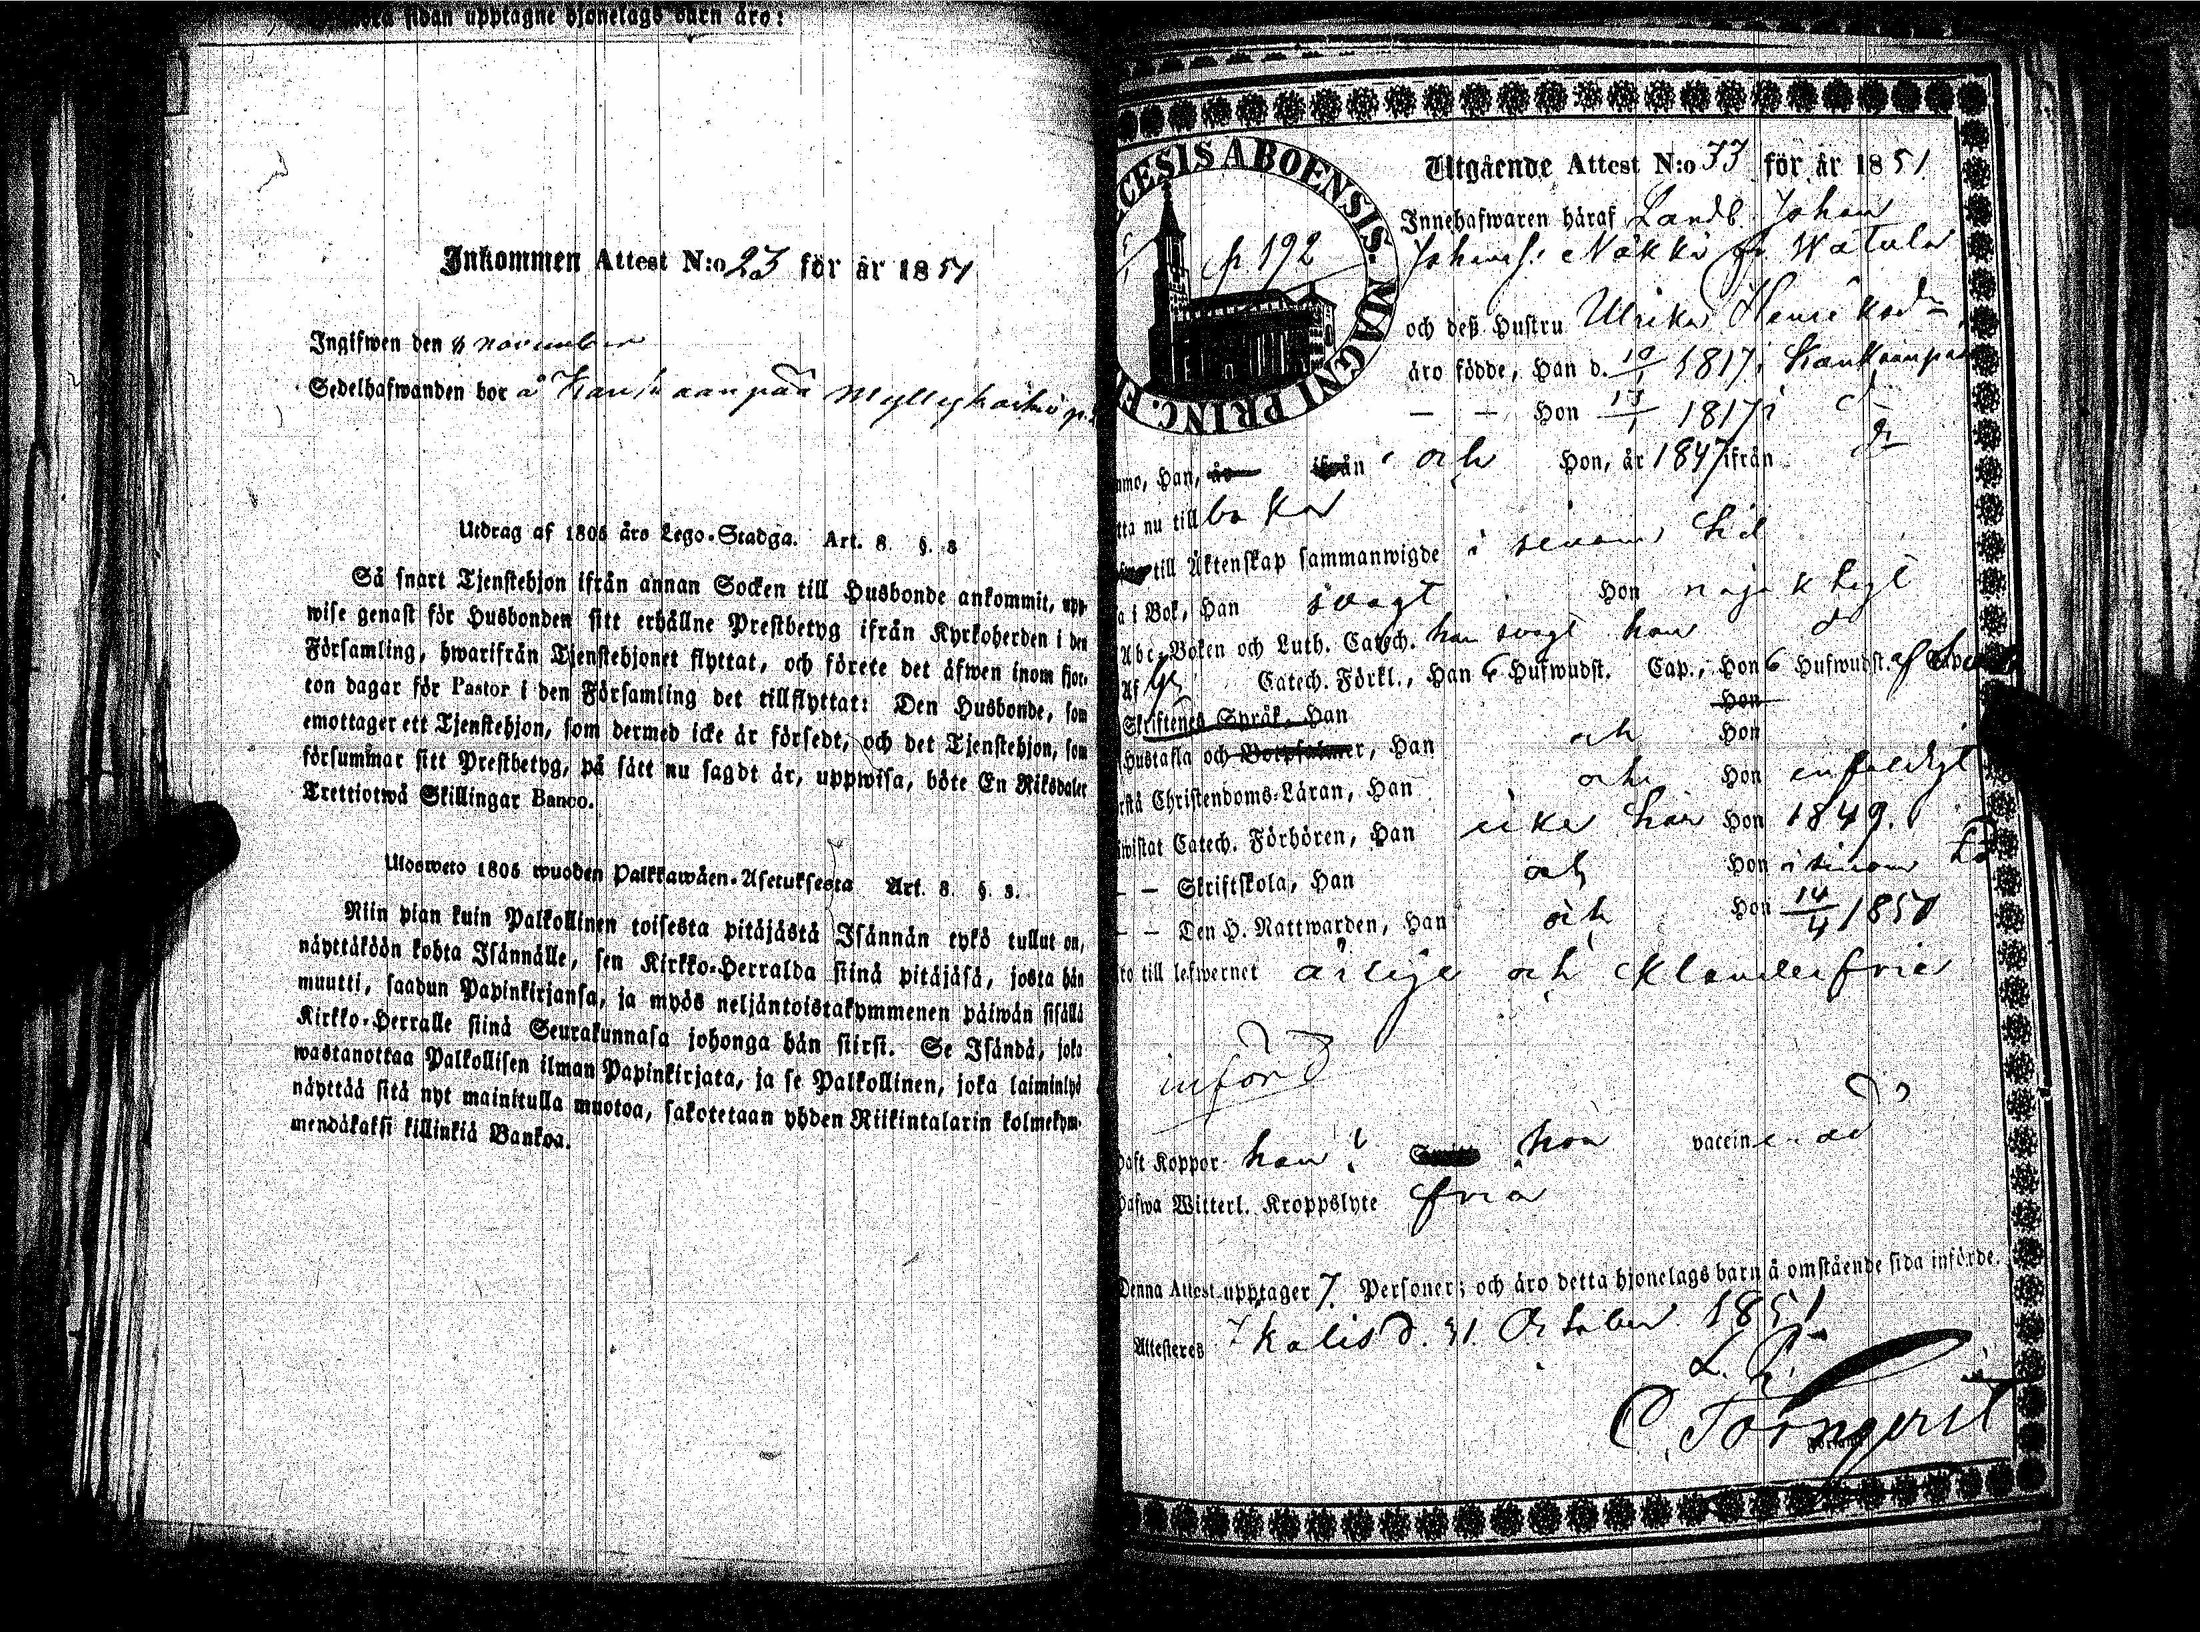 sidan upptagne hjonelags barn äro:
Inkommen Attest N:o 23 för år 1851
Ingifwen den 8 november
Sedelhafwanden bor å Kankaanpää Myllyharhu
Utdrag af 1805 års Lego-Stadga. Art. 8 §. 3
Så snart Tjenstehjon ifrån annan Socken till Husbonde ankommit, upp-
wise genast för Husbonden sitt erhållne Prestbetyg ifrån Kyrkoherden i den
Församling, hwarifrån Tjenstehjonet flyttat, och förete det äfwen inom fjor-
ton dagar för Pastor i den Församling det tillflyttat: Den Husbonde, som
emottager ett Tjenstehjon, som dermed icke är försedt, och det Tjenstehjon, som
försummar sitt Prestbetyg, på sätt nu sagdt är, uppwisa, böte En Riksdaler
Trettiotwå Skillingar Banco.
Ulosweto 1805 wuoden Palkkawäen-Asetuksesta Art. 8. §. 3.
Niin pian kuin Palkollinen toisesta pitäjästä Isännän tykö tullut on,
näyttäköön kohta Isännälle, sen Kirkko-Herralda siinä pitäjäsä, josta hän
muutti, saadun Papinkirjansa, ja myös neljäntoistakymmenen päiwän sisällä
Kirkko-Herralle siinä Seurakunnasa johonga hän siirsi. Se Isändä, joka
wastanottaa Palkollisen ilman Papinkirjata, ja se Palkollinen, joka laiminlyö
näyttää sitä nyt mainitulla muotoa, sakotetaan yhden Riikintalarin kolmekym-
mendäkaksi killinkiä Bankoa.
CESIS ABOENSIS. MAGNI PRINC. F
p 192
Utgående Attest N:o 33 för år 1851
Innehafwaren häraf Landb. Johan
Johans. Näkki fr Watula
och deß Hustru Ulrika Henriksd
äro födde, Han d. 10/1 1817 i Kankaanpää
— — Hon 13/1 1817 i d
Han, år ifrån och Hon, år 1847 ifrån d
nu tillbaka
till Äktenskap sammanwigde i sinom tid
i Bok, Han svagt Hon nöjaktigt
Abc-Boken och Luth. Catech. han svagt hon do
Af Catech. Förkl., Han 6 Hufwudst. Cap., Hon 6 Hufwudst. af
Skriftenes Språk, Han Hon
Hustafla och Botpsalmer, Han och Hon
Christendoms-Läran, Han och Hon enfaldigt
Catech. Förhören, Han icke här Hon 1849.
— — Skriftskola, Han och Hon i sinom tid
— — Den H. Nattwarden, Han och Hon 14/4 1850
till lefwernet ärlige och klanderfria
införd
haft Koppor han, hon vaccinerad
Hafwa Witterl. Kroppslyte fria
Denna Attest upptager 7. Personer; och äro detta hjonelags barn å omstående sida införde.
Attesteres Ikalis d. 31. October 1851
C. Törnqvist